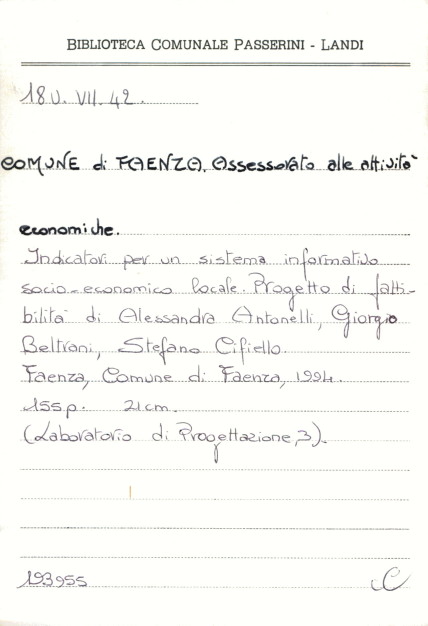 BIBLIOTECA COMUNALE PASSERINI - LANDI
18 U. VII. 42.
COMUNE di FAENZA. Assessorato alle attività
economiche.
Indicatori per un sistema informativo
socio-economico locale. Progetto di fatti-
bilità di Alessandra Antonelli, Giorgio
Beltrani, Stefano Cifiello.
Faenza, Comune di Faenza, 1994.
155 p. 21 cm.
(Laboratorio di Progettazione, 3).
193955 C